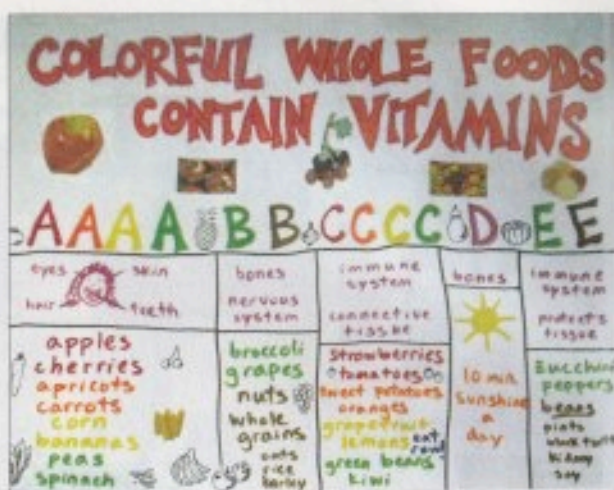 COLORFUL WHOLE FOODS
CONTAIN VITAMINS
A A A A B B C C C C D E E
eyes skin
hair teeth
bones
nervous
system
immune
system
connective
tissue
bones
immune
system
protects
tissue
apples
cherries
apricots
carrots
corn
bananas
peas
spinach
broccoli
grapes
nuts
whole
grains
oats
rice
barley
strawberries
tomatoes
sweet potatoes
oranges
grapefruit
lemons eat
raw!
green beans
kiwi
10 min.
sunshine
a
day
zucchini
peppers
beans
pinto
kidney
soy